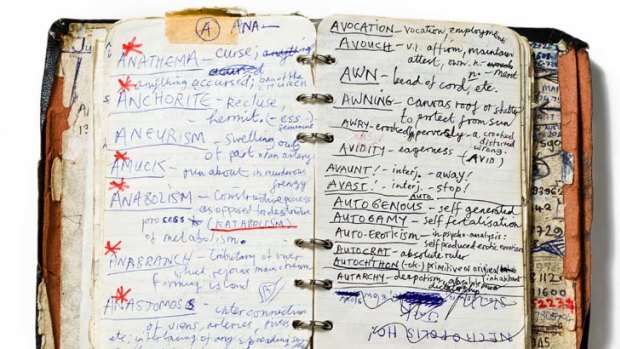 A ANA-
ANATHEMA - curse; anything
accursed
anything accursed; ban of the CHURCH
ANCHORITE - Recluse,
hermit. (-ess-)
feminine
ANEURISM - Swelling out
of part of an artery
AMUCK - run about in murderous
frenzy
ANABOLISM - Constructive process
as opposed to destructive
process (KATABOLISM)
of metabolism.
ANABRANCH - tributary of river
which rejoins main stream
forming island
ANASTOMOSIS - interconnection
of veins, arteries, trees
etc; interlacing of any spreading
AVOCATION - vocation, employment
AVOUCH - v.t. affirm, maintain
attest, own. n.
AWN - bead of cord, etc.
AWNING - canvas roof or shelter
to protect from sun
AWRY - crooked, perversly - a. crooked
distorted
wrong.
AVIDITY - eagerness (AVID)
AVAUNT! - interj. - away!
AVAST! - interj. - stop!
AUTO
AUTOGENOUS - self generated
AUTOGAMY - self fertalisation
AUTO-EROTICISM - in psycho-analysis:
self produced erotic emotions
AUTOCRAT - absolute ruler
AUTOCHTHON (-ok-) primitive or original
inhabitant
AUTARCHY - despotism, absolute power
NECROPOLIS HO!